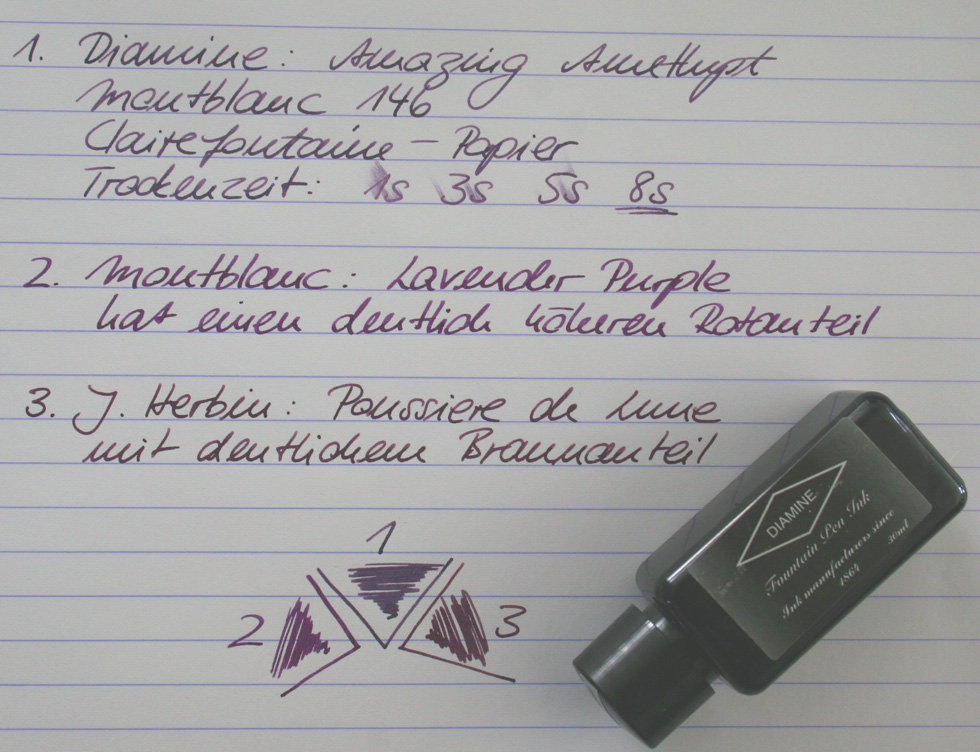 1. Diamine: Amazing Amethyst
Montblanc 146
Clairefontaine – Papier
Trockenzeit: 1s 3s 5s 8s
2. Montblanc: Lavender Purple
hat einen deutlich höheren Rotanteil
3. J. Herbin: Poussiere de Lune
mit deutlichem Braunanteil
1
2
3
DIAMINE
Fountain Pen Ink
Ink manufacturers since
1864
30ml